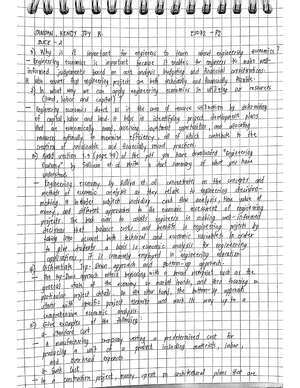 DINGDING, KENDY JOY R.
BSCE - A
1) Why is it important for engineers to learn about engineering economics?
- Engineering economics is important because it enables for engineers to make well-
informed judgements based on cost analysis, budgeting and financial constraints.
It also ensures that engineering project are both technically and financially feasible.
2) In what way we can apply engineering economics in utilizing our resources
(land, labor and capital)?
- Engineering economics assist us in the area of resource utilization by determining
of capital, labor and land. It helps in identifying project development plans
that are economically sound, assessing investment opportunities, and allocating
resources optimally to maximize efficiency, all of which contribute to the
creation of sustainable and financially sound practices.
3) Read section 1-4 (page 40) of the pdf you have downloaded "Engineering
Economy" by Sullivan et al. Write a short summary of what you have
understood.
- Engineering economy by Sullivan et al. concentrates on the concepts and
methods of economic analysis as they relate to engineering decision-
making. It includes subjects including cash flow analysis, time value of
money, and different approaches to the economic assessment of engineering
projects. The book aims to enable engineers in making well-informed
decisions that balance costs and benefits in engineering projects by
taking into account both technical and economic variables. In order
to give students a basis in economic analysis for engineering
applications, it is commonly employed in engineering education.
4) Differentiate Top-Down approach and bottom-up approach.
- The top-down approach entails beginning with a broad viewpoint, such as the
general state of the economy or market trends, and then focusing on
particular project details. On the other hand, the bottom-up approach
starts with specific project elements and work its way up to a
comprehensive economic analysis.
5) Give examples of the following:
a. Standard cost
- A manufacturing company setting a predetermined cost for
producing a unit of a product including materials, labor,
and overhead expenses.
b. Sunk cost
- In a construction project, money spent on architectural plans that are